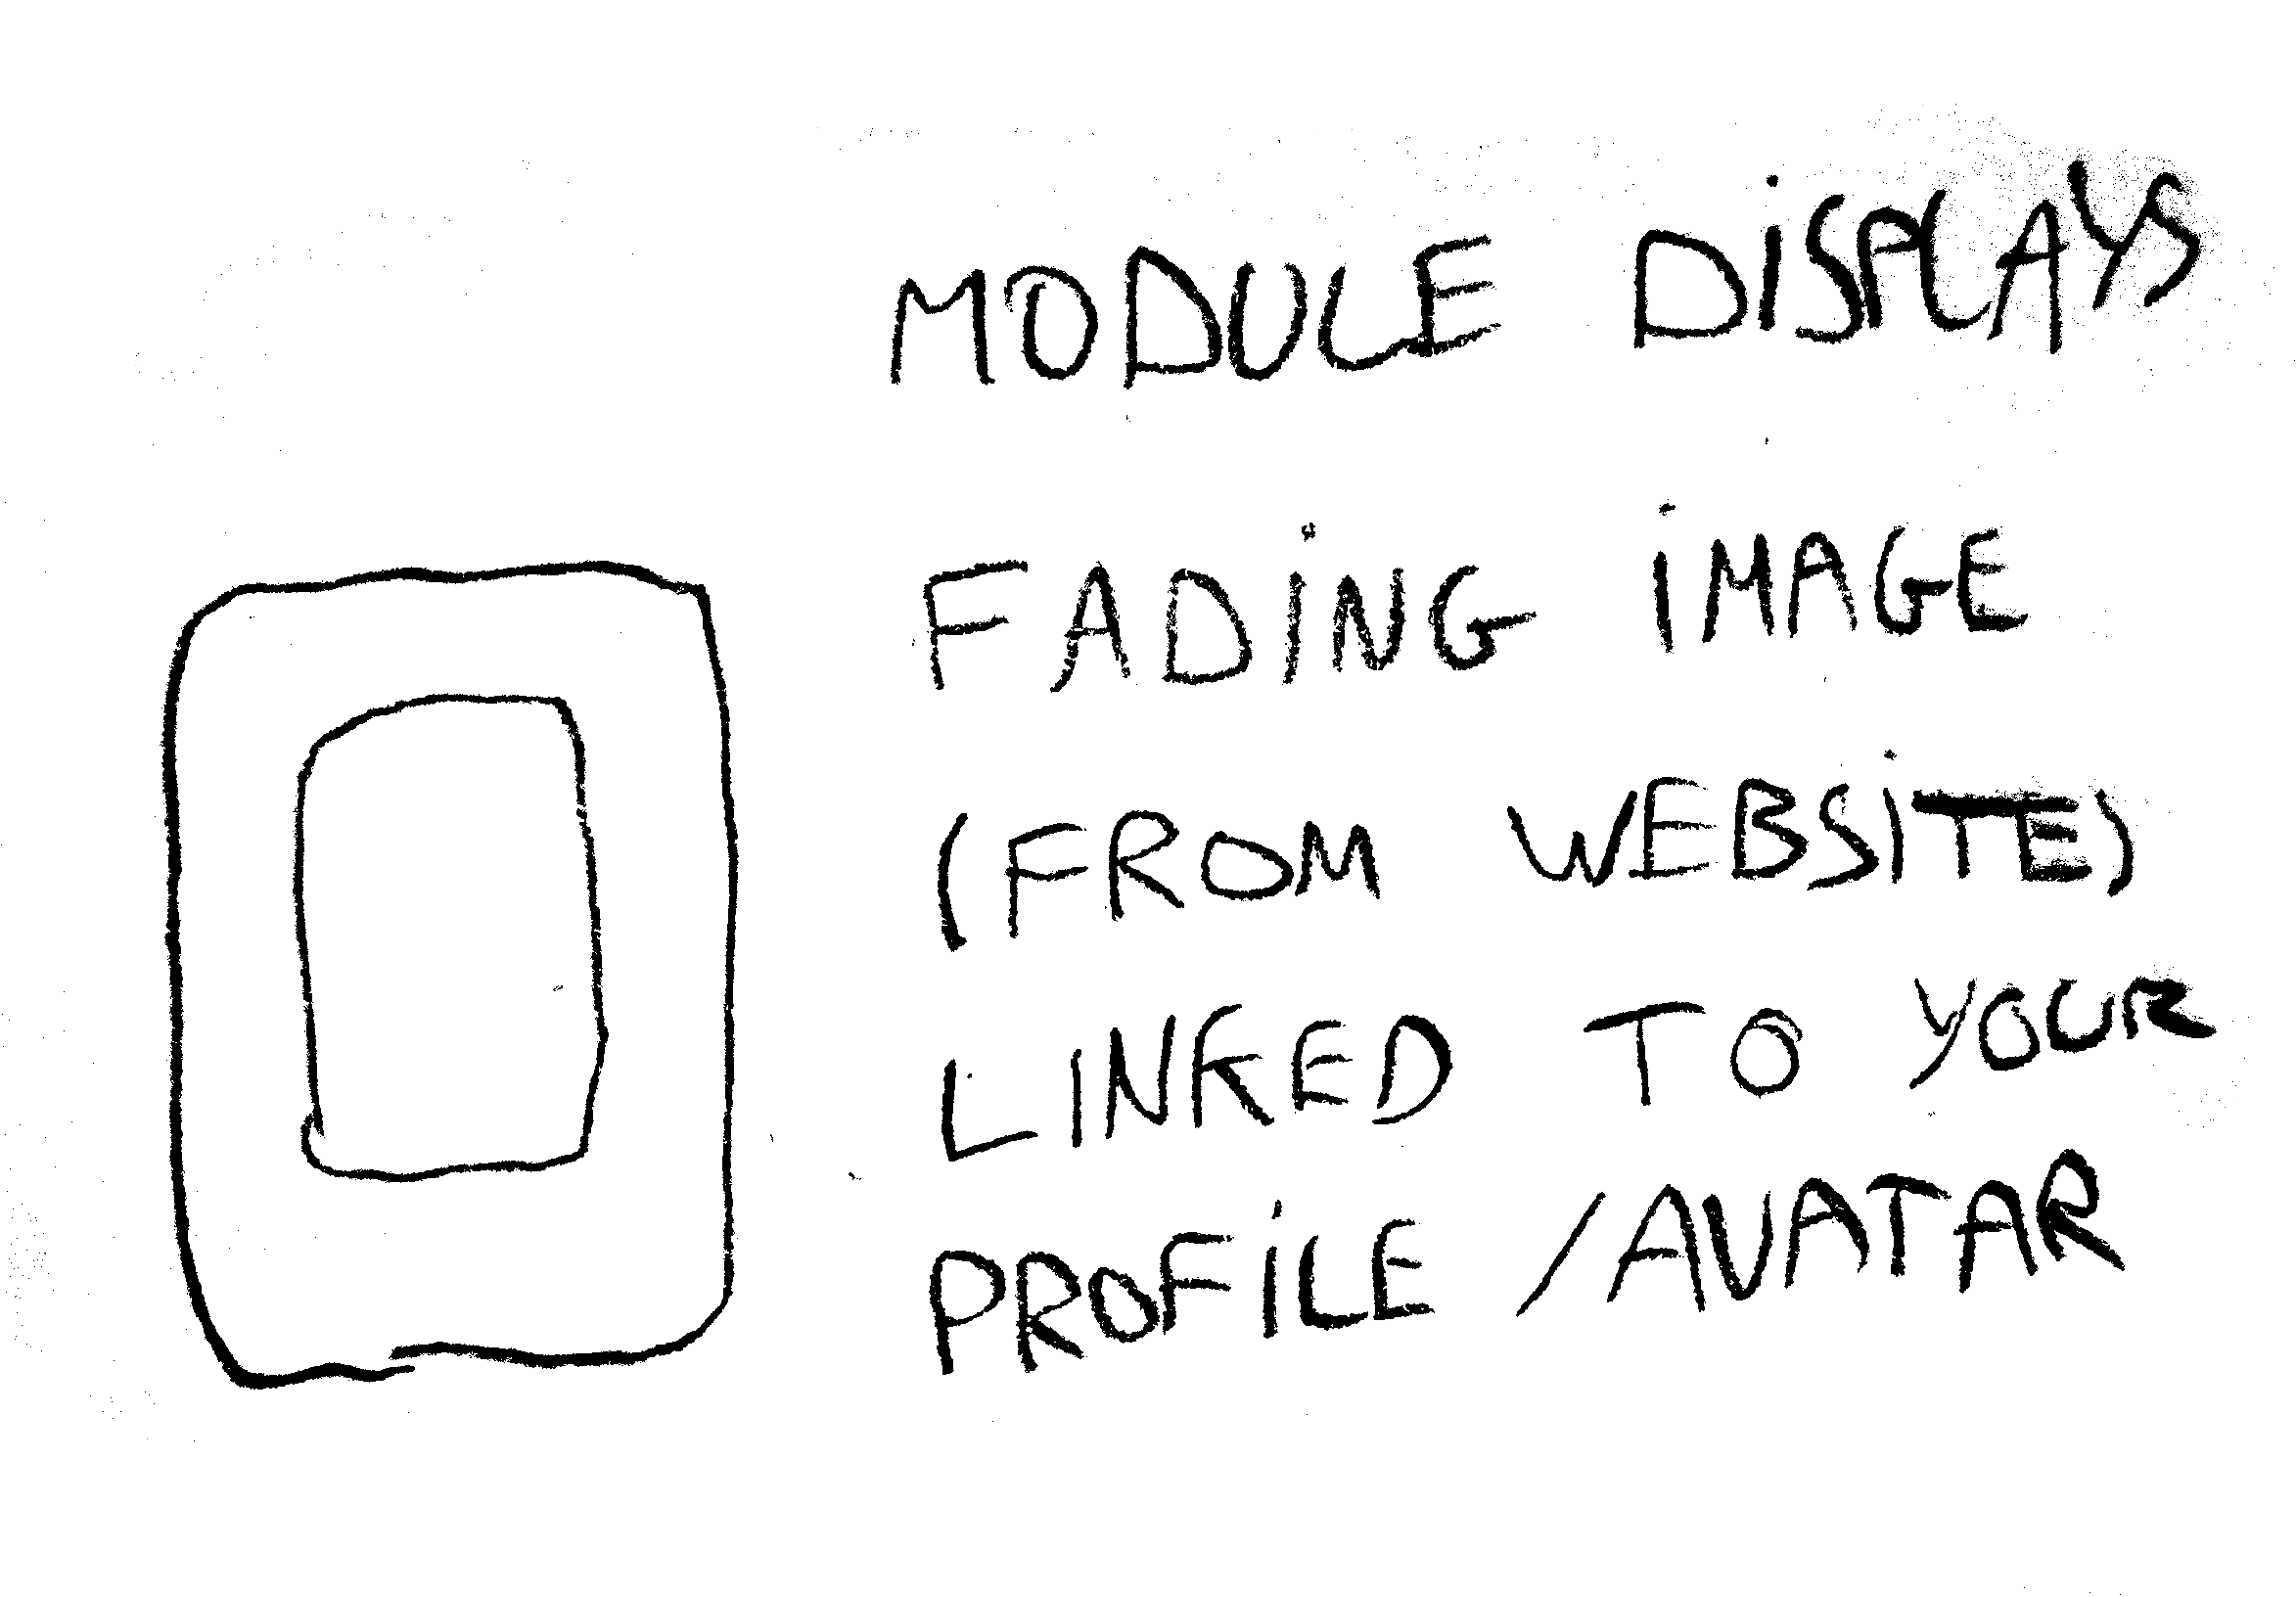 MODULE DISPLAYS
FADING IMAGE
(FROM WEBSITE)
LINKED TO YOUR
PROFILE / AVATAR